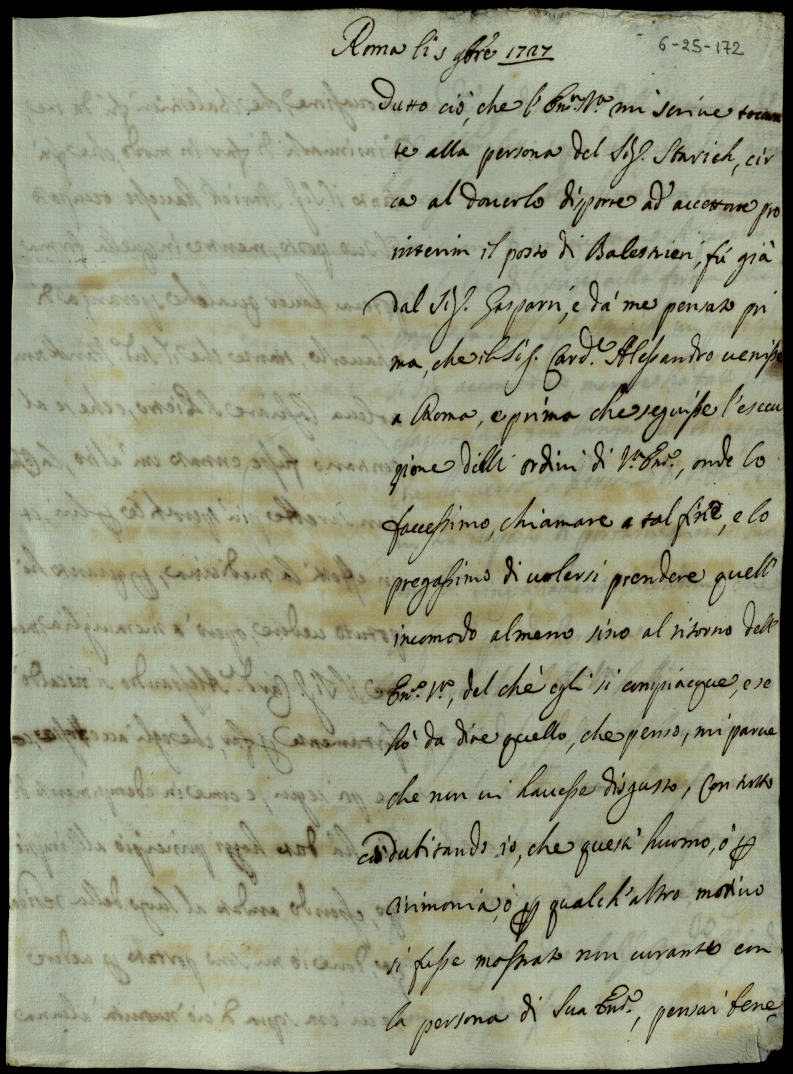 6-25-172
Roma li 5 9bre 1727
Tutto ciò, che l'Emza Va mi scrive toccan
te alla persona del Sigr. Starich, cir
ca al douerlo disporre ad accettare pro
interim il posto di Balestrieri, fù già
dal Sigr. Gasparri, e dà me pensato pri
ma, che il Sigr. Card.le Alessandro uenisse
a Roma, e prima che seguisse l'esecu
zione delli ordini di Va Emza, onde lo
facessimo, chiamare a tal fine, e lo
pregassimo di uolersi prendere quell'
incomodo almeno sino al ritorno dell'
Emza Va, del che egli si compiacque, e se
hò da dire quello, che penso, mi parue
che non ui hauesse disgusto, Con tutto
ciò dubitando io, che quest'huomo, ò p
cirimonia, ò p qualch'altro motiuo
si fusse mostrato non curante con
la persona di Sua Emza, pensai bene